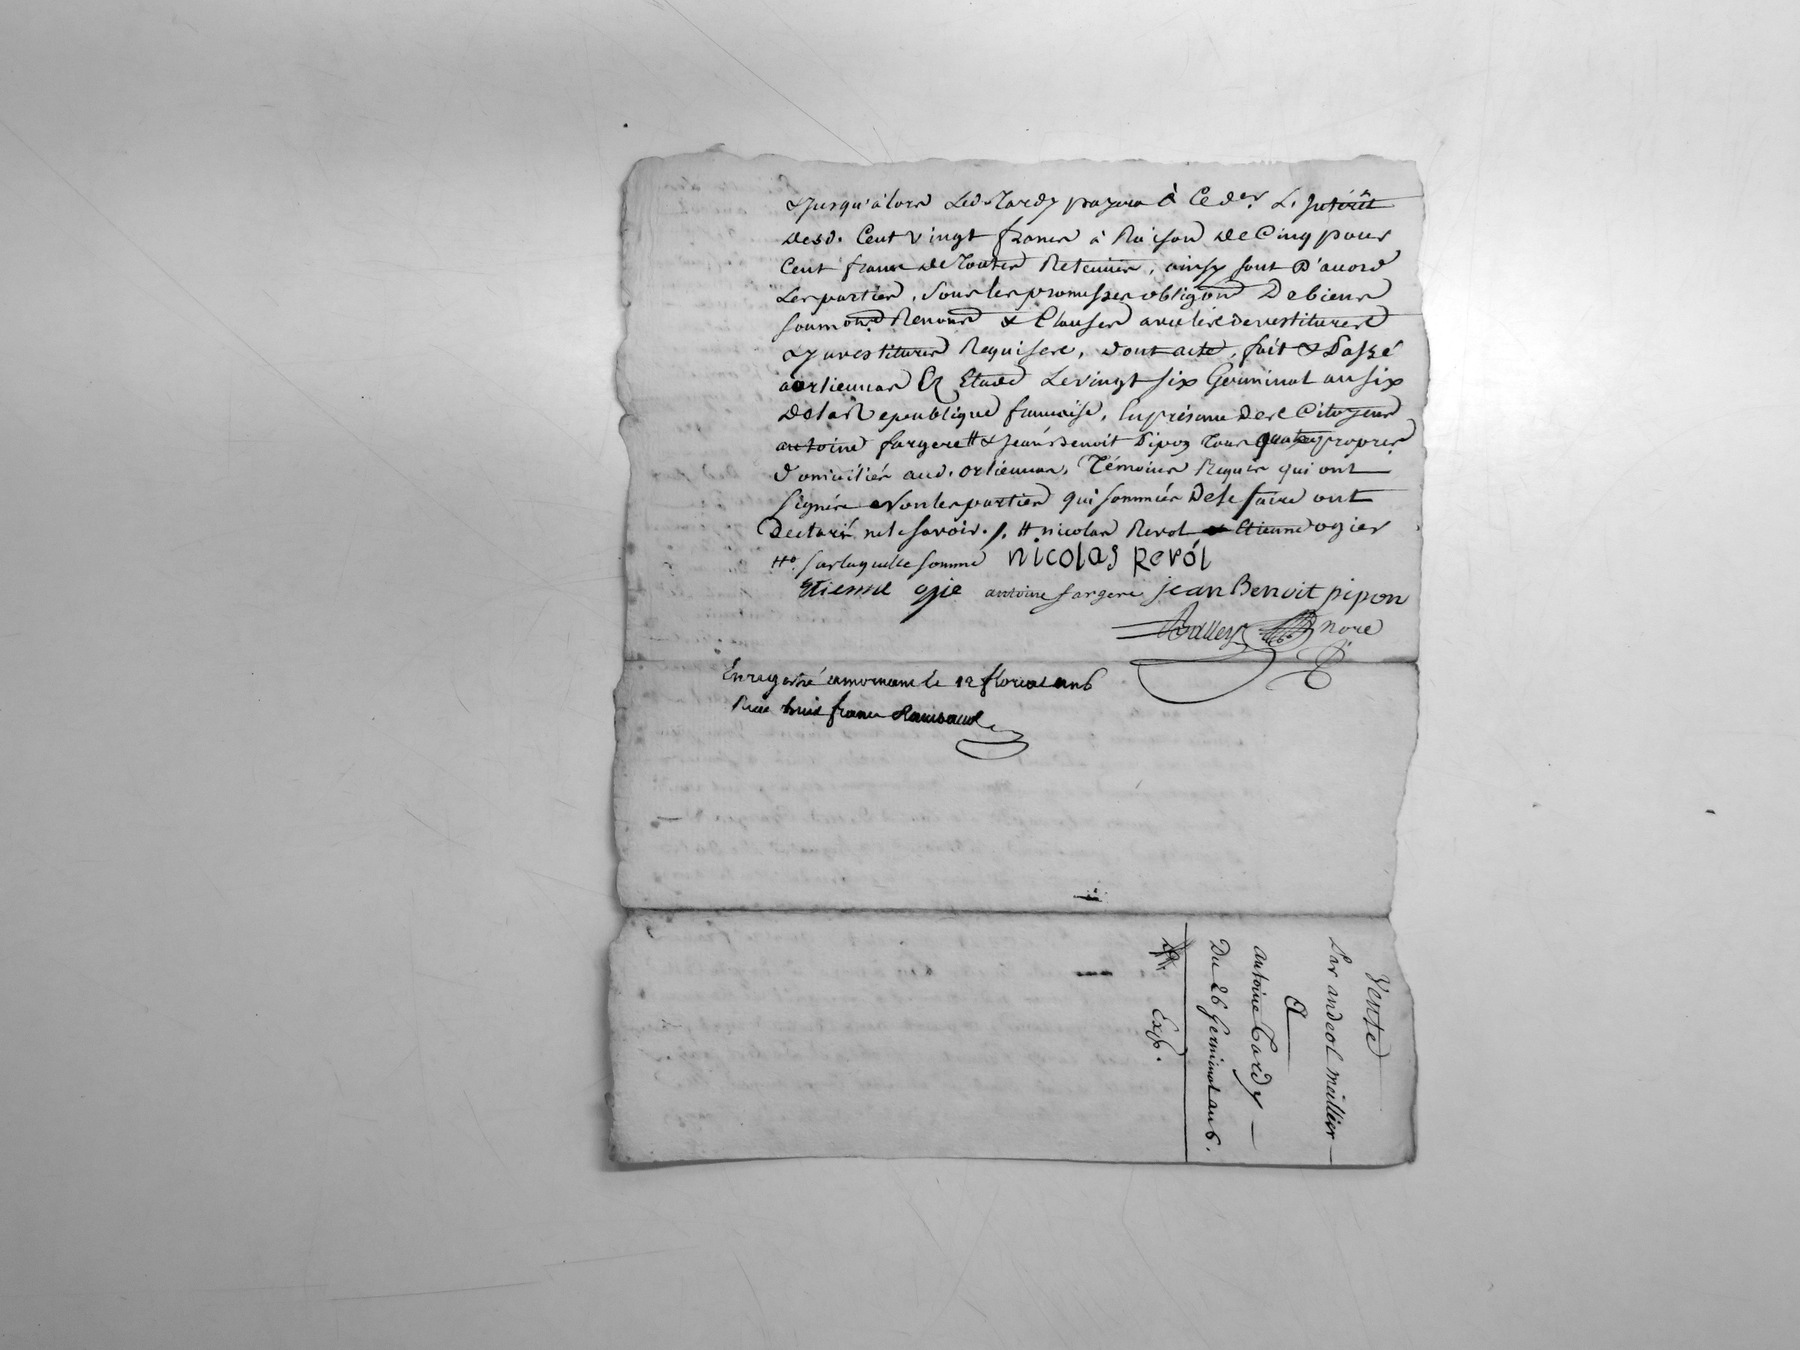 & Jusqu'alors led. Tardy payera à Ced.er L. Intérêt
desd. Cent vingt francs à Raison de Cinq pour
Cent franc de toutes Retenües, ainsy sont D'acord
Les parties, Sous les promesses obligôns De biens
soumôns Renons & Clauses avec les devestitures
& ynvestitures Requises, dont acte, fait & Passé
a orliennas En Etude Le vingt six Germinal an six
de la Republique francaise, En présence des Citoyens
antoine fargere # & jean Benoit Pipon tous quatre propres
domiciliés aud. orliennas, Témoins Requis qui ont
signés & non les parties qui sommées De le faire ont
Declaré ne le savoir ./. # nicolas Revol & Etienne ogier
#o. sur laquelle somme nicolas Revól
Etienne ogie antoine fargere jean Benoit pipon
nore
Enregistré a mornant le 12 floreal an 6
Recu huit francs
Vente
Par andeol meillier
A
antoine Tardy
Du 26 Germinal an 6.
Exp.